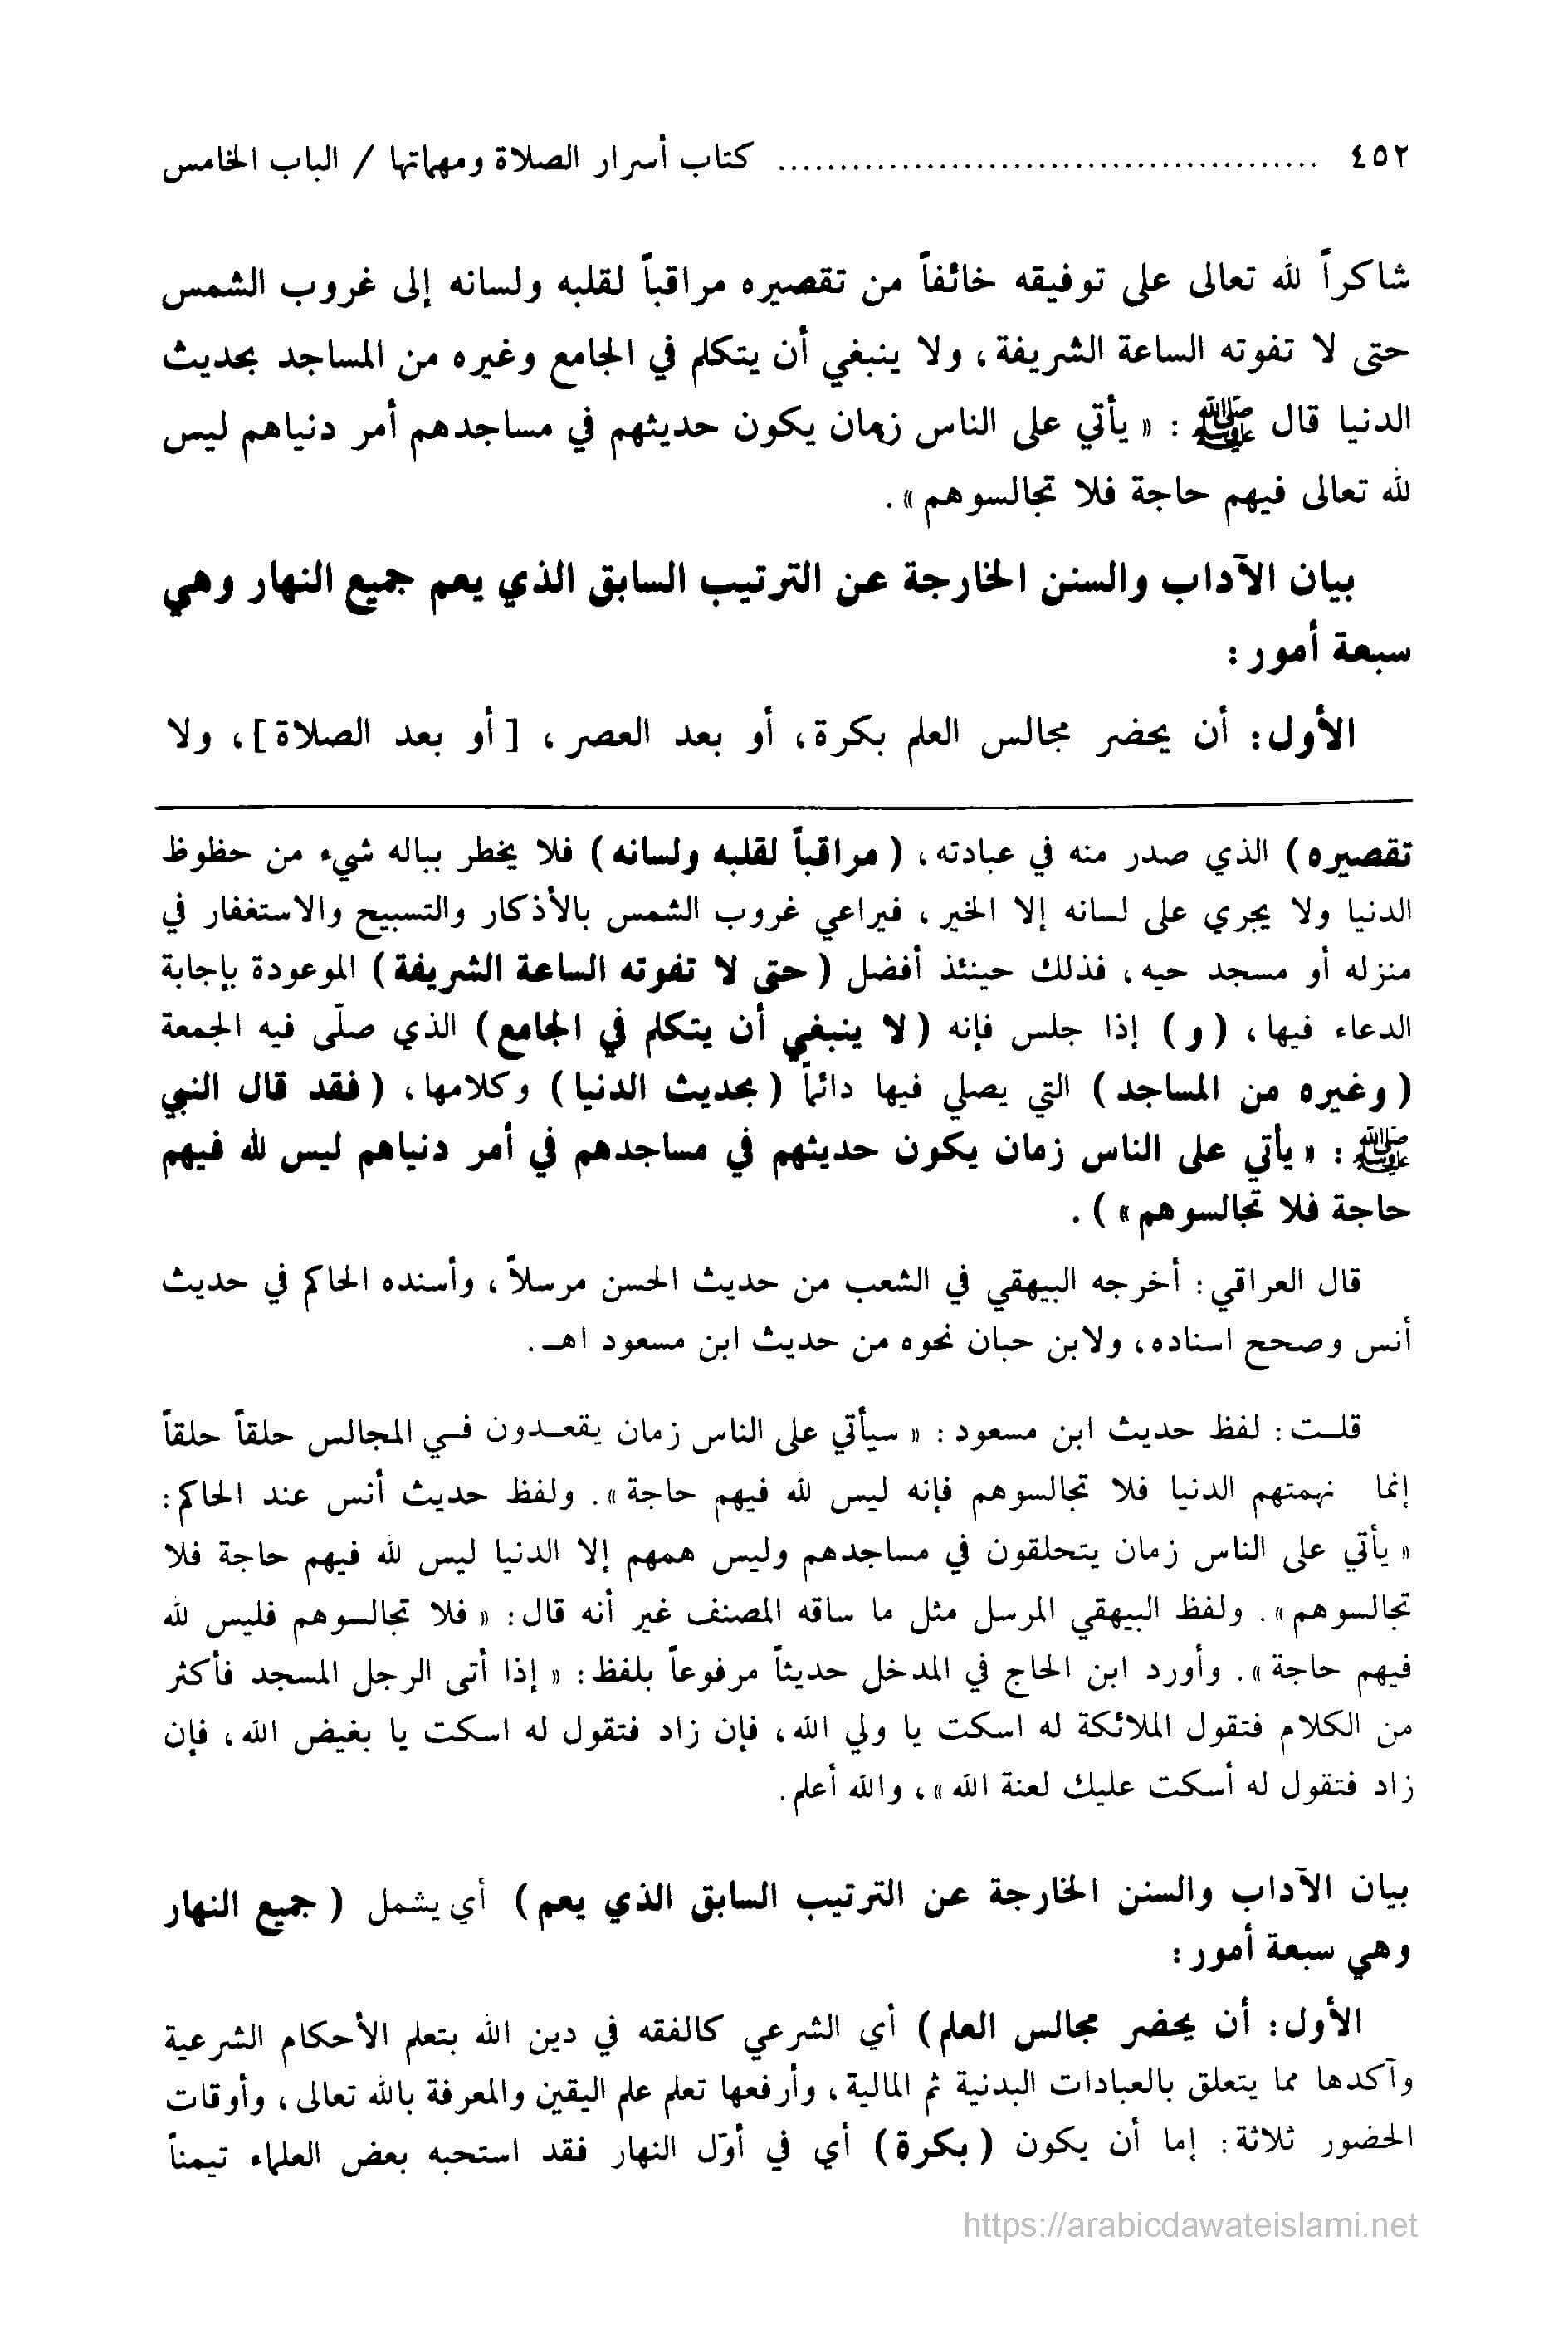 ٤٥٢ ............................................. كتاب أسرار الصلاة ومهماتها / الباب الخامس
شاكراً لله تعالى على توفيقه خائفاً من تقصيره مراقباً لقلبه ولسانه إلى غروب الشمس
حتى لا تفوته الساعة الشريفة، ولا ينبغي أن يتكلم في الجامع وغيره من المساجد بحديث
الدنيا قال ﷺ : « يأتي على الناس زمان يكون حديثهم في مساجدهم أمر دنياهم ليس
لله تعالى فيهم حاجة فلا تجالسوهم ».
بيان الآداب والسنن الخارجة عن الترتيب السابق الذي يعم جميع النهار وهي
سبعة أمور :
الأول: أن يحضر مجالس العلم بكرة، أو بعد العصر، [ أو بعد الصلاة ]، ولا
تقصيره ) الذي صدر منه في عبادته، ( مراقباً لقلبه ولسانه ) فلا يخطر بباله شيء من حظوظ
الدنيا ولا يجري على لسانه إلا الخير، فيراعي غروب الشمس بالأذكار والتسبيح والاستغفار في
منزله أو مسجد حيه، فذلك حينئذ أفضل ( حتى لا تفوته الساعة الشريفة ) الموعودة بإجابة
الدعاء فيها، ( و ) إذا جلس فإنه ( لا ينبغي أن يتكلم في الجامع ) الذي صلّى فيه الجمعة
( وغيره من المساجد ) التي يصلي فيها دائماً ( بحديث الدنيا ) وكلامها، ( فقد قال النبي
ﷺ : « يأتي على الناس زمان يكون حديثهم في مساجدهم في أمر دنياهم ليس لله فيهم
حاجة فلا تجالسوهم » ) .
قال العراقي: أخرجه البيهقي في الشعب من حديث الحسن مرسلاً، وأسنده الحاكم في حديث
أنس وصحح اسناده، ولابن حبان نحوه من حديث ابن مسعود اهـ.
قلت: لفظ حديث ابن مسعود: « سيأتي على الناس زمان يقعدون في المجالس حلقاً حلقاً
إنما نهمتهم الدنيا فلا تجالسوهم فإنه ليس لله فيهم حاجة ». ولفظ حديث أنس عند الحاكم:
« يأتي على الناس زمان يتحلقون في مساجدهم وليس همهم إلا الدنيا ليس لله فيهم حاجة فلا
تجالسوهم ». ولفظ البيهقي المرسل مثل ما ساقه المصنف غير أنه قال: « فلا تجالسوهم فليس لله
فيهم حاجة ». وأورد ابن الحاج في المدخل حديثاً مرفوعاً بلفظ: « إذا أتى الرجل المسجد فأكثر
من الكلام فتقول الملائكة له اسكت يا ولي الله، فإن زاد فتقول له اسكت يا بغيض الله، فإن
زاد فتقول له أسكت عليك لعنة الله »، والله أعلم.
بيان الآداب والسنن الخارجة عن الترتيب السابق الذي يعم ) أي يشمل ( جميع النهار
وهي سبعة أمور :
الأول: أن يحضر مجالس العلم ) أي الشرعي كالفقه في دين الله بتعلم الأحكام الشرعية
وآكدها مما يتعلق بالعبادات البدنية ثم المالية، وأرفعها تعلم علم اليقين والمعرفة بالله تعالى، وأوقات
الحضور ثلاثة: إما أن يكون ( بكرة ) أي في أوّل النهار فقد استحبه بعض العلماء تيمناً
https://arabicdawateislami.net